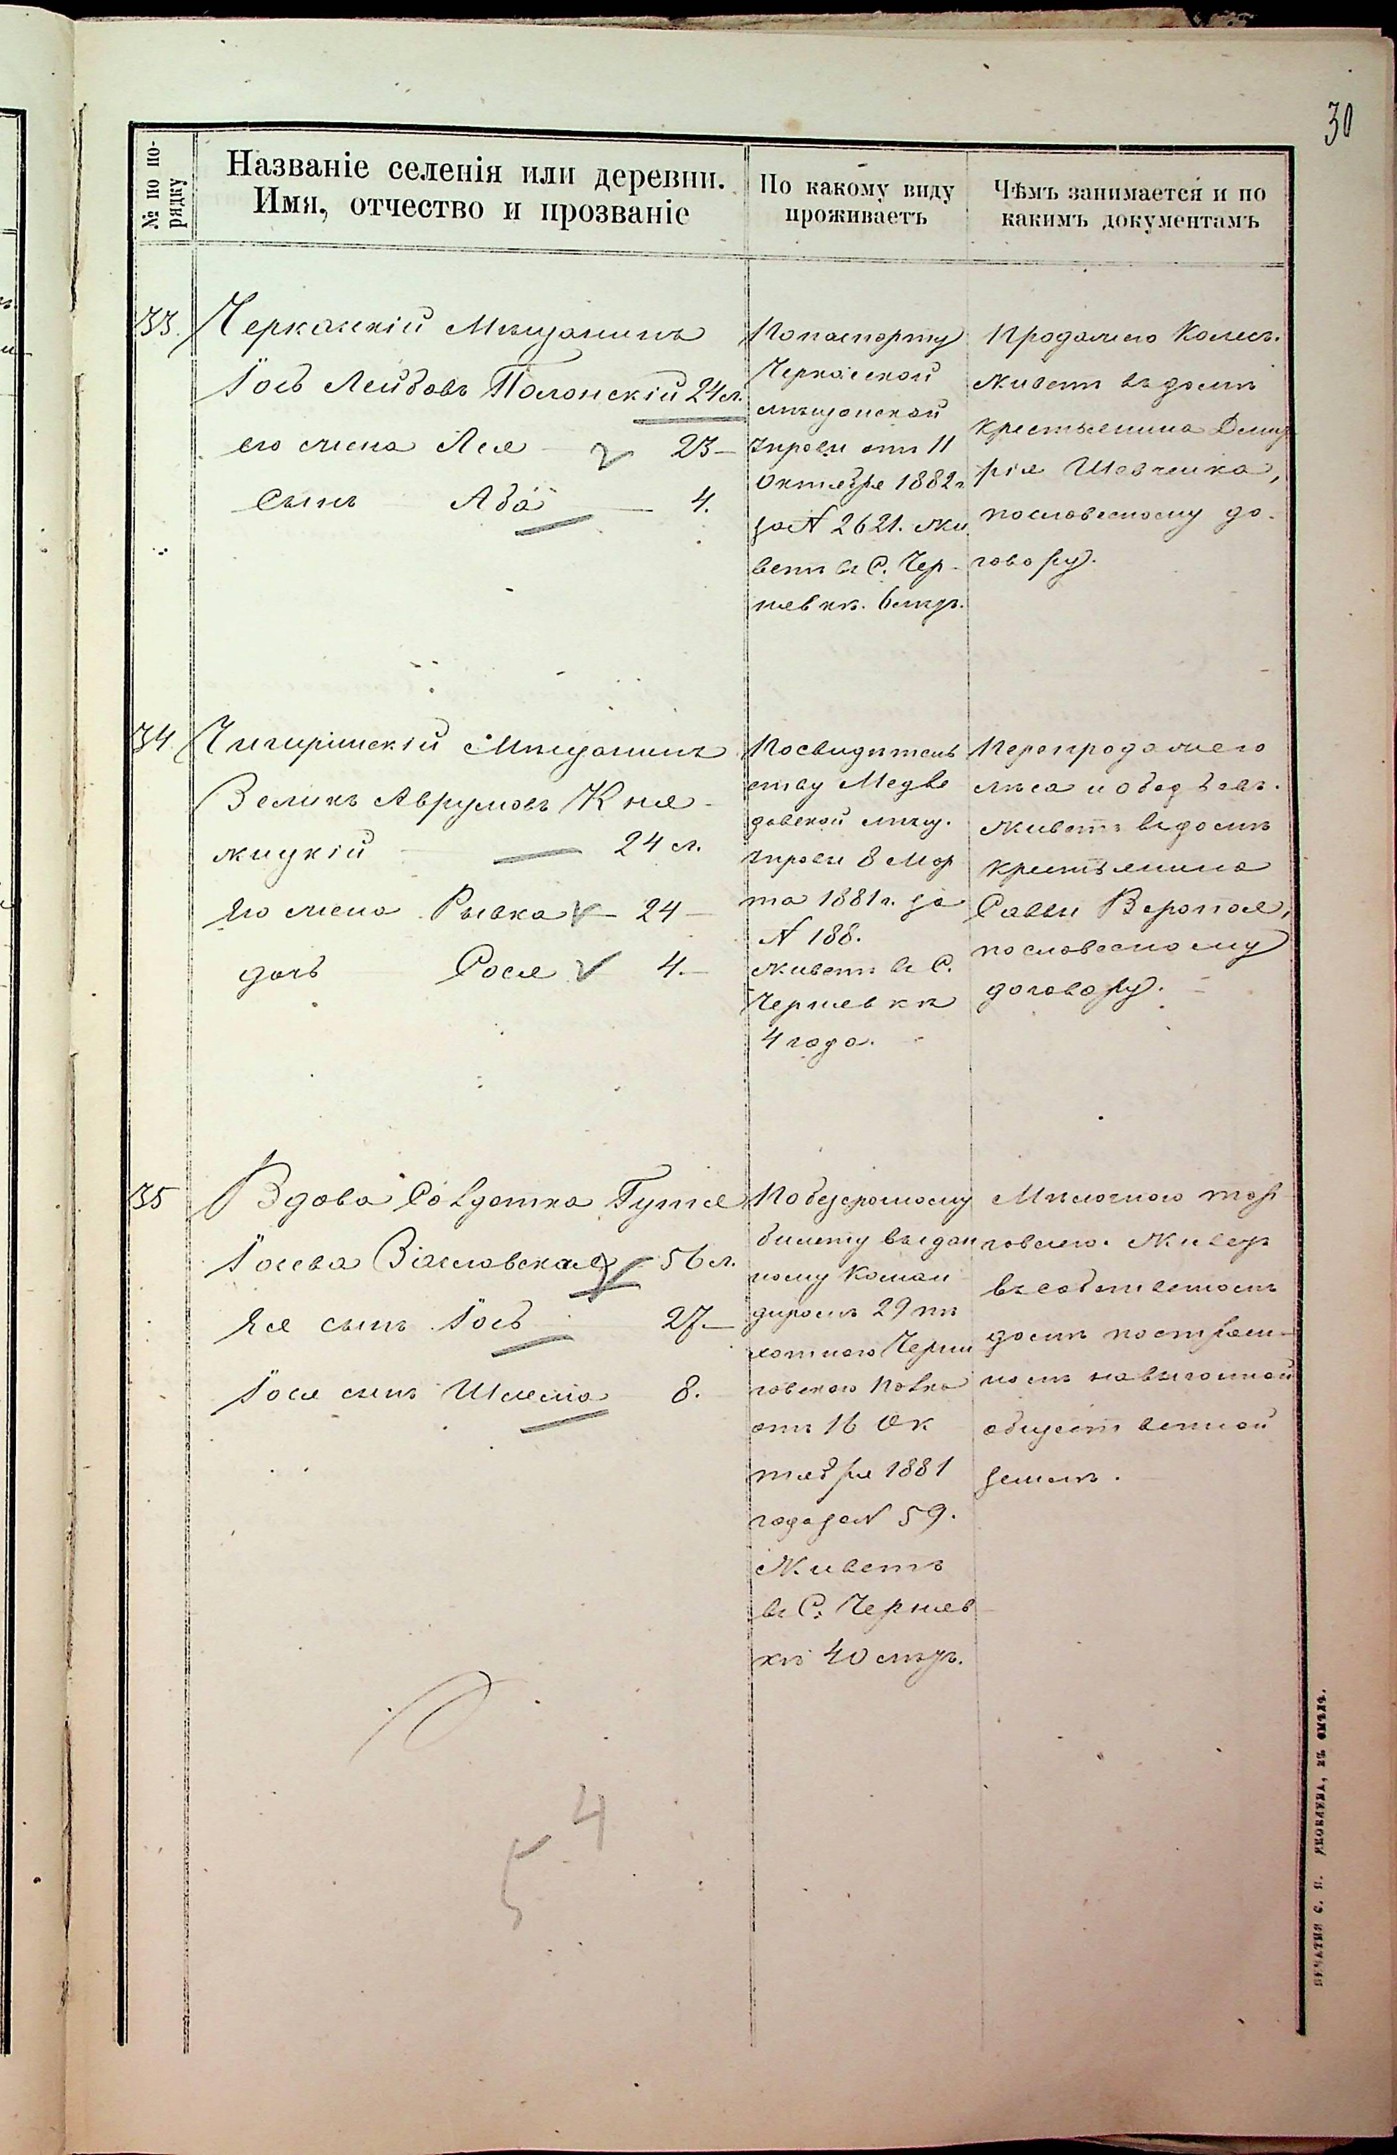 30
№ по по-
рядку
Названіе селенія или деревни.
Имя, отчество и прозваніе
По какому виду
проживаетъ
Чѣмъ занимается и по
какимъ документамъ
33.
Черкаскій Мѣщанинъ
Іось Лейбовъ Полонскій 24 л.
его жена Лея 23 —
Сынъ Аба — 4.
По паспорту
Черкасской
мѣщанской
управы отъ 11
Октября 1882 г
за № 2621. жи
ветъ въ С. Чер-
невкѣ. 6 лѣтъ.
Продажею Колесъ.
Живетъ въ домѣ
крестьянина Дмит
рія Шевченка,
пословесному до-
говору.
34.
Чигиринскій Мѣщанинъ
Великъ Аврумовъ Кня-
жицкій — 24 л.
Его жена Рывка — 24 —
дочь Сося 4. —
Посвидѣтель
ству Медве
довской мѣщ.
управы 8 Мар
та 1881 г. за
№ 188.
Живетъ въ С.
Черневкѣ
4 года.
Перепродажею
лѣса и ободьевъ.
Живетъ въ домѣ
крестьянина
Саввы
пословесному
договору.
35
Вдова Солдатка Гутля
Іосева Заславская 56 л.
Ея сынъ Іось 27. —
Іося сынъ Шлема 8.
По безсрочному
билету выдан
ному Коман
диромъ 29 пѣ
хотнаго Черни
говскаго Полка
отъ 16 Ок
тября 1881
года за № 59.
Живетъ
въ С. Чернев
кѣ 40 лѣтъ.
Мѣлочною тор-
говлею. Живетъ
въ собственномъ
домѣ построен-
номъ на выгонной
общественной
землѣ.
4
5
ПЕЧАТНЯ С. П. ЯКОВЛЕВА, ВЪ СМѢЛѢ.